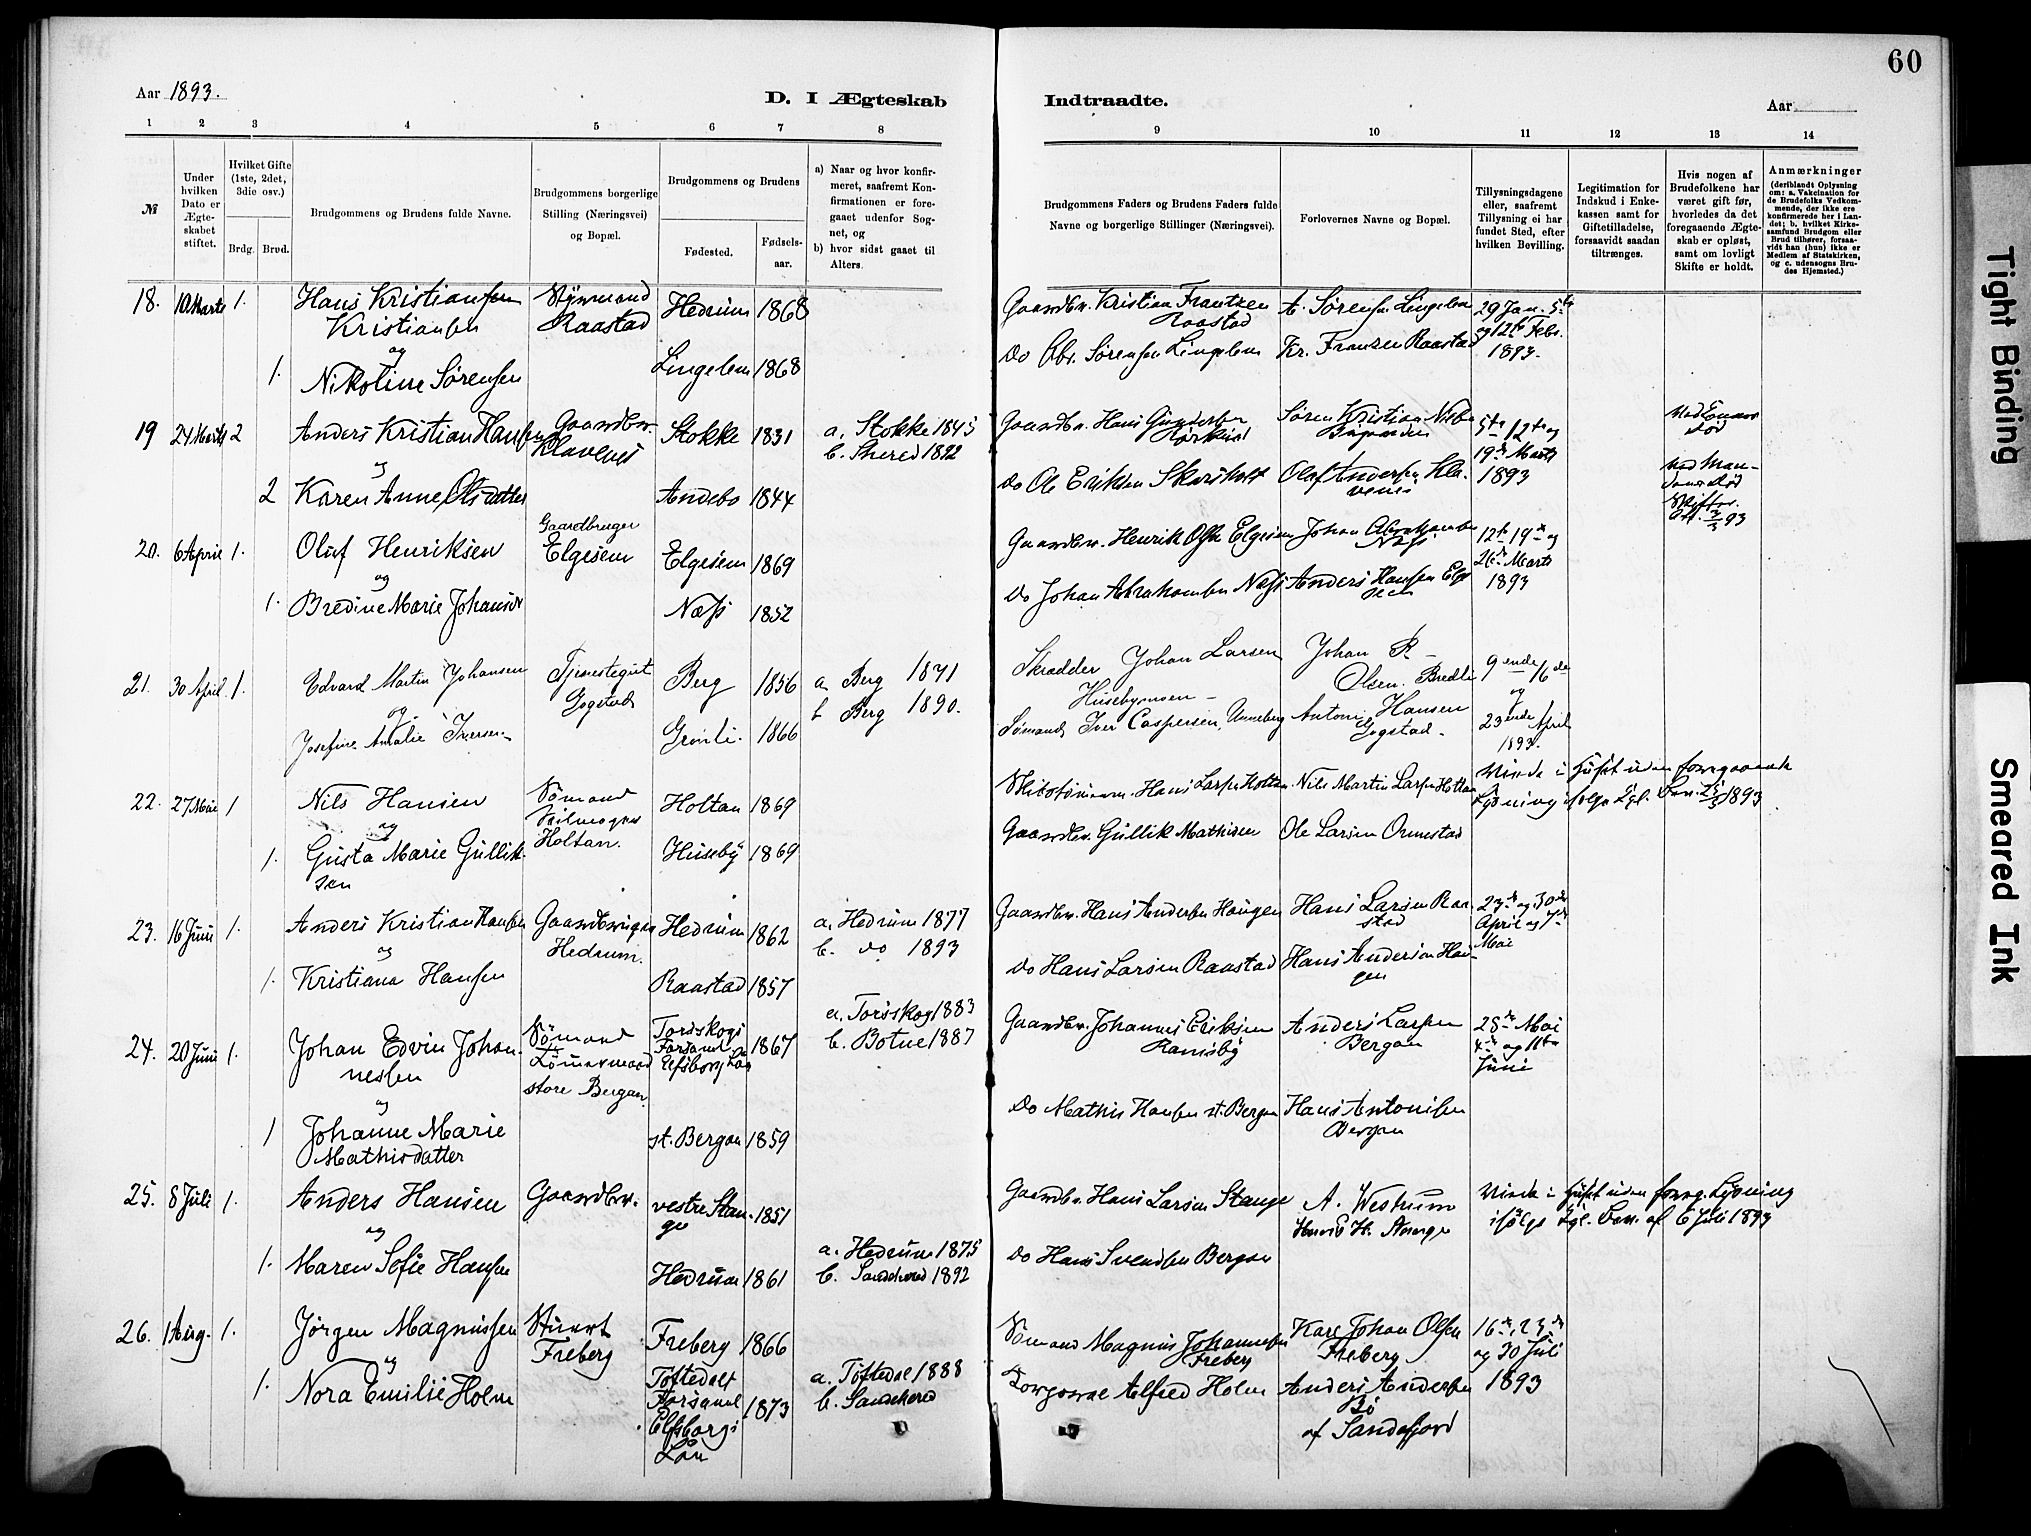 60
Aar 1893.
D. I Ægteskab
Indtraadte.
Aar
1 2 3 4 5 6 7 8
9 10 11 12 13 14
№
Under hvilken Dato er Ægteskabet stiftet.
Hvilket Gifte (1ste, 2det, 3die osv.)
Brdg. Brud.
Brudgommens og Brudens fulde Navne.
Brudgommens borgerlige Stilling (Næringsvei) og Bopæl.
Brudgommens og Brudens
Fødested.
Fødselsaar.
a) Naar og hvor konfirmeret, saafremt Konfirmationen er foregaaet udenfor Sognet, og
b) hvor sidst gaaet til Alters.
Brudgommens Faders og Brudens Faders fulde Navne og borgerlige Stillinger (Næringsvei).
Forlovernes Navne og Bopæl.
Tillysningsdagene eller, saafremt Tillysning ei har fundet Sted, efter hvilken Bevilling.
Legitimation for Indskud i Enkekassen samt for Giftetilladelse, forsaavidt saadan tiltrænges.
Hvis nogen af Brudefolkene har været gift før, hvorledes da det foregaaende Ægteskab er opløst, samt om lovligt Skifte er holdt.
Anmærkninger
(deriblandt Oplysning om: a. Vakcination for de Brudefolks Vedkommende, der ikke ere konfirmerede her i Landet; b. hvilket Kirkesamfund Brudgom eller Brud tilhører, forsaavidt han (hun) ikke er Medlem af Statskirken, og c. udensogns Brudes Hjemsted.)
18. 10 Marts 1. Hans Kristiansen Styrmand Hedrum 1868
Kristiansen Raastad
og
1. Nikoline Sørensen Lingelem 1868
Gaardbr. Kristian Frantzen A. Sørensen Lingelem 29 Jan. 5te
Raastad og 12te Febr.
Do Abr. Sørensen Lingelem Kr. Franzen Raastad 1893.
19 24 Marts 2 Anders Kristian Hansen Gaardbr. Stokke 1831 a. Stokke 1845
og Klavenes b. Shered 1892
2 Karen Anne Olsdatter Andebo 1844
Gaardbr. Hans Gundersen Søren Kristian 5te 12te og
19de Marts
Do Ole Eriksen Skarsholt Olaf Andersen Klavenes 1893
død
20. 6 April 1. Oluf Henriksen Gaardbruger Elgesem 1869
og Elgesem
1. Bredine Marie Johansdr Næss 1852
Gaardbr. Henrik Olsen Elgesem Johan Abrahamsen 12te 19de og
Næss 26de Marts
Do Johan Abrahamsen Næss Anders Hansen Elgesem 1893
21. 30 April 1. Edvard Martin Johansen Tjenestegut Berg 1856 a Berg 1871
og Gogstad b Berg 1890.
Josefine Amalie Iversen Grønli 1866
Skrædder Johan Larsen Johan R 9ende 16de
Husebymoen Olsen. Bredli og
Sømand Iver Caspersen, Unneberg Anton Hansen 23ende April
Gogstad 1893.
22. 27 Mai 1 Nils Hansen Sømand Holtan 1869
og Holtan.
1. Gusta Marie Gulliksen Huseby 1869
Hans Larsen Holtan Nils Martin Larsen Holtan Viede i Huset uden foregaaende
Lysning ifølge Kgl. Bev. 1893
Gaardbr. Gullik Mathisen Ole Larsen Ormestad
23. 16 Juni 1. Anders Kristian Hansen Gaardbruger Hedrum 1862 a. Hedrum 1877
og Hedrum. b. do 1893
1. Kristiane Hansen Raastad 1857
Gaardbr. Hans Andersen Haugen Hans Larsen Raastad 23de og 30de
April og 7de
Mai
Do Hans Larsen Raastad Hans Andersen Haugen
24. 20 Juni 1. Johan Edvin Johannessen Sømand Torsskogs 1867 a. Torsskog 1883
og store Bergan Forsaml. b. Botne 1887
Elfsborg Län
1 Johanne Marie st. Bergan 1859
Mathisdatter
Gaardbr. Johannes Eriksen Anders Larsen 28de Mai
Ramsby Bergan 4de og 11te
Juni
Do Mathis Hansen st. Bergan Hans Antonisen
Bergan
25. 8 Juli 1. Anders Hansen Gaardbr. vestre Stange 1851
og
1. Maren Sofie Hansen Hedrum 1861 a. Hedrum 1875
b. Sandehered 1892
Gaardbr. Hans Larsen Stange A. Westrum Viede i Huset uden foreg. Lysning
ifølge Kgl. Bev. af 6 Juli 1893
Do Hans Svendsen Bergan
26. 1 Aug. 1. Jørgen Magnussen Stuert Freberg 1866
og Freberg
1. Nora Emilie Holm Töftedals 1873 a. Töftedal 1888
Forsaml b. Sandehered
Elfsborgs
Län
Sømand Magnus Johannesen Karl Johan Olsen 16de, 23de
Freberg Freberg og 30 Juli
Alfred Holm Anders Andersen 1893
Bö
af Sandefjord
Tight Binding
Smeared Ink